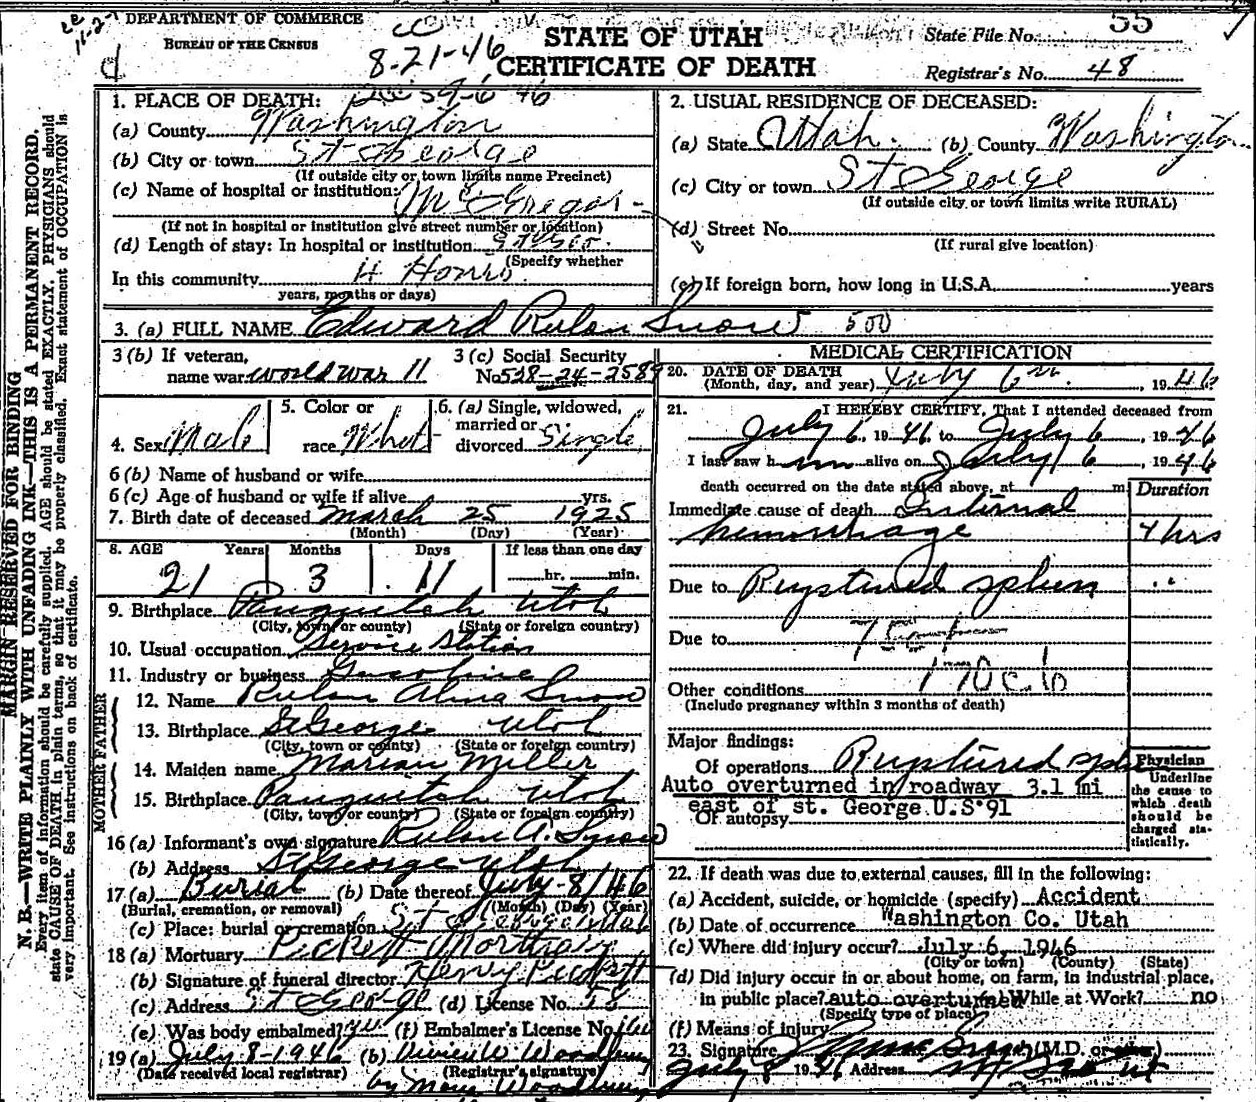 DEPARTMENT OF COMMERCE
BUREAU OF THE CENSUS
8-21-46
STATE OF UTAH
CERTIFICATE OF DEATH
State File No. 55
Registrar's No. 48
MARGIN RESERVED FOR BINDING
N. B.—WRITE PLAINLY WITH UNFADING INK—THIS IS A PERMANENT RECORD.
Every item of information should be carefully supplied. AGE should be stated EXACTLY. PHYSICIANS should
state CAUSE OF DEATH in plain terms, so that it may be properly classified. Exact statement of OCCUPATION is
very important. See instructions on back of certificate.
1. PLACE OF DEATH:
(a) County Washington
(b) City or town St George
(If outside city or town limits name Precinct)
(c) Name of hospital or institution:
McGregor
(If not in hospital or institution give street number or location)
(d) Length of stay: In hospital or institution
(Specify whether
In this community
years, months or days)
2. USUAL RESIDENCE OF DECEASED:
(a) State Utah. (b) County Washington
(c) City or town St George
(If outside city or town limits write RURAL)
(d) Street No.
(If rural give location)
(e) If foreign born, how long in U.S.A. years
3. (a) FULL NAME Edward Rulon Snow 500
3 (b) If veteran,
name war world war 11
3 (c) Social Security
No. 528-24-2589
4. Sex Male
5. Color or
race Whit
6. (a) Single, widowed,
married or
divorced Single
6 (b) Name of husband or wife
6 (c) Age of husband or wife if alive yrs.
7. Birth date of deceased March 25 1925
(Month) (Day) (Year)
8. AGE Years Months Days If less than one day
21 3 11 hr. min.
9. Birthplace Panguitch Utah
(City, town or county) (State or foreign country)
10. Usual occupation Service Station
11. Industry or business Gasoline
FATHER
12. Name Rulon Alma Snow
13. Birthplace St George Utah
(City, town or county) (State or foreign country)
MOTHER
14. Maiden name Marian Miller
15. Birthplace Panguitch Utah
(City, town or county) (State or foreign country)
16 (a) Informant's own signature Rulon A. Snow
(b) Address St George Utah
17 (a) Burial (b) Date thereof July-8/46
(Burial, cremation, or removal) (Month) (Day) (Year)
(c) Place: burial or cremation St George Utah
18 (a) Mortuary Pickett Mortuary
(b) Signature of funeral director Henry Pickett
(c) Address St George (d) License No. 58
(e) Was body embalmed? (f) Embalmer's License No.
19 (a) July 8-1946 (b) Vivien W. Woodbury
(Date received local registrar) (Registrar's signature)
by Woodbury
MEDICAL CERTIFICATION
20. DATE OF DEATH
(Month, day, and year) July 6th, 1946
21. I HEREBY CERTIFY, That I attended deceased from
July 6, 1946 to July 6, 1946
I last saw him alive on July 6, 1946
death occurred on the date stated above, at m.
Duration
Immediate cause of death Internal
hemorrhage 4 hrs
Due to Ruptured spleen "
Due to
170c b
Other conditions
(Include pregnancy within 3 months of death)
Major findings:
Of operations Ruptured
Auto overturned in roadway 3.1 mi
east of st. George U.S°91
Of autopsy
Physician
Underline
the cause to
which death
should be
charged sta-
tistically.
22. If death was due to external causes, fill in the following:
(a) Accident, suicide, or homicide (specify) Accident
(b) Date of occurrence Washington Co. Utah
(c) Where did injury occur? July 6, 1946
(City or town) (County) (State)
(d) Did injury occur in or about home, on farm, in industrial place,
in public place? auto overturned While at Work? no
(Specify type of place)
(f) Means of injury
23. Signature (M.D. or other)
July 8 1946 Address